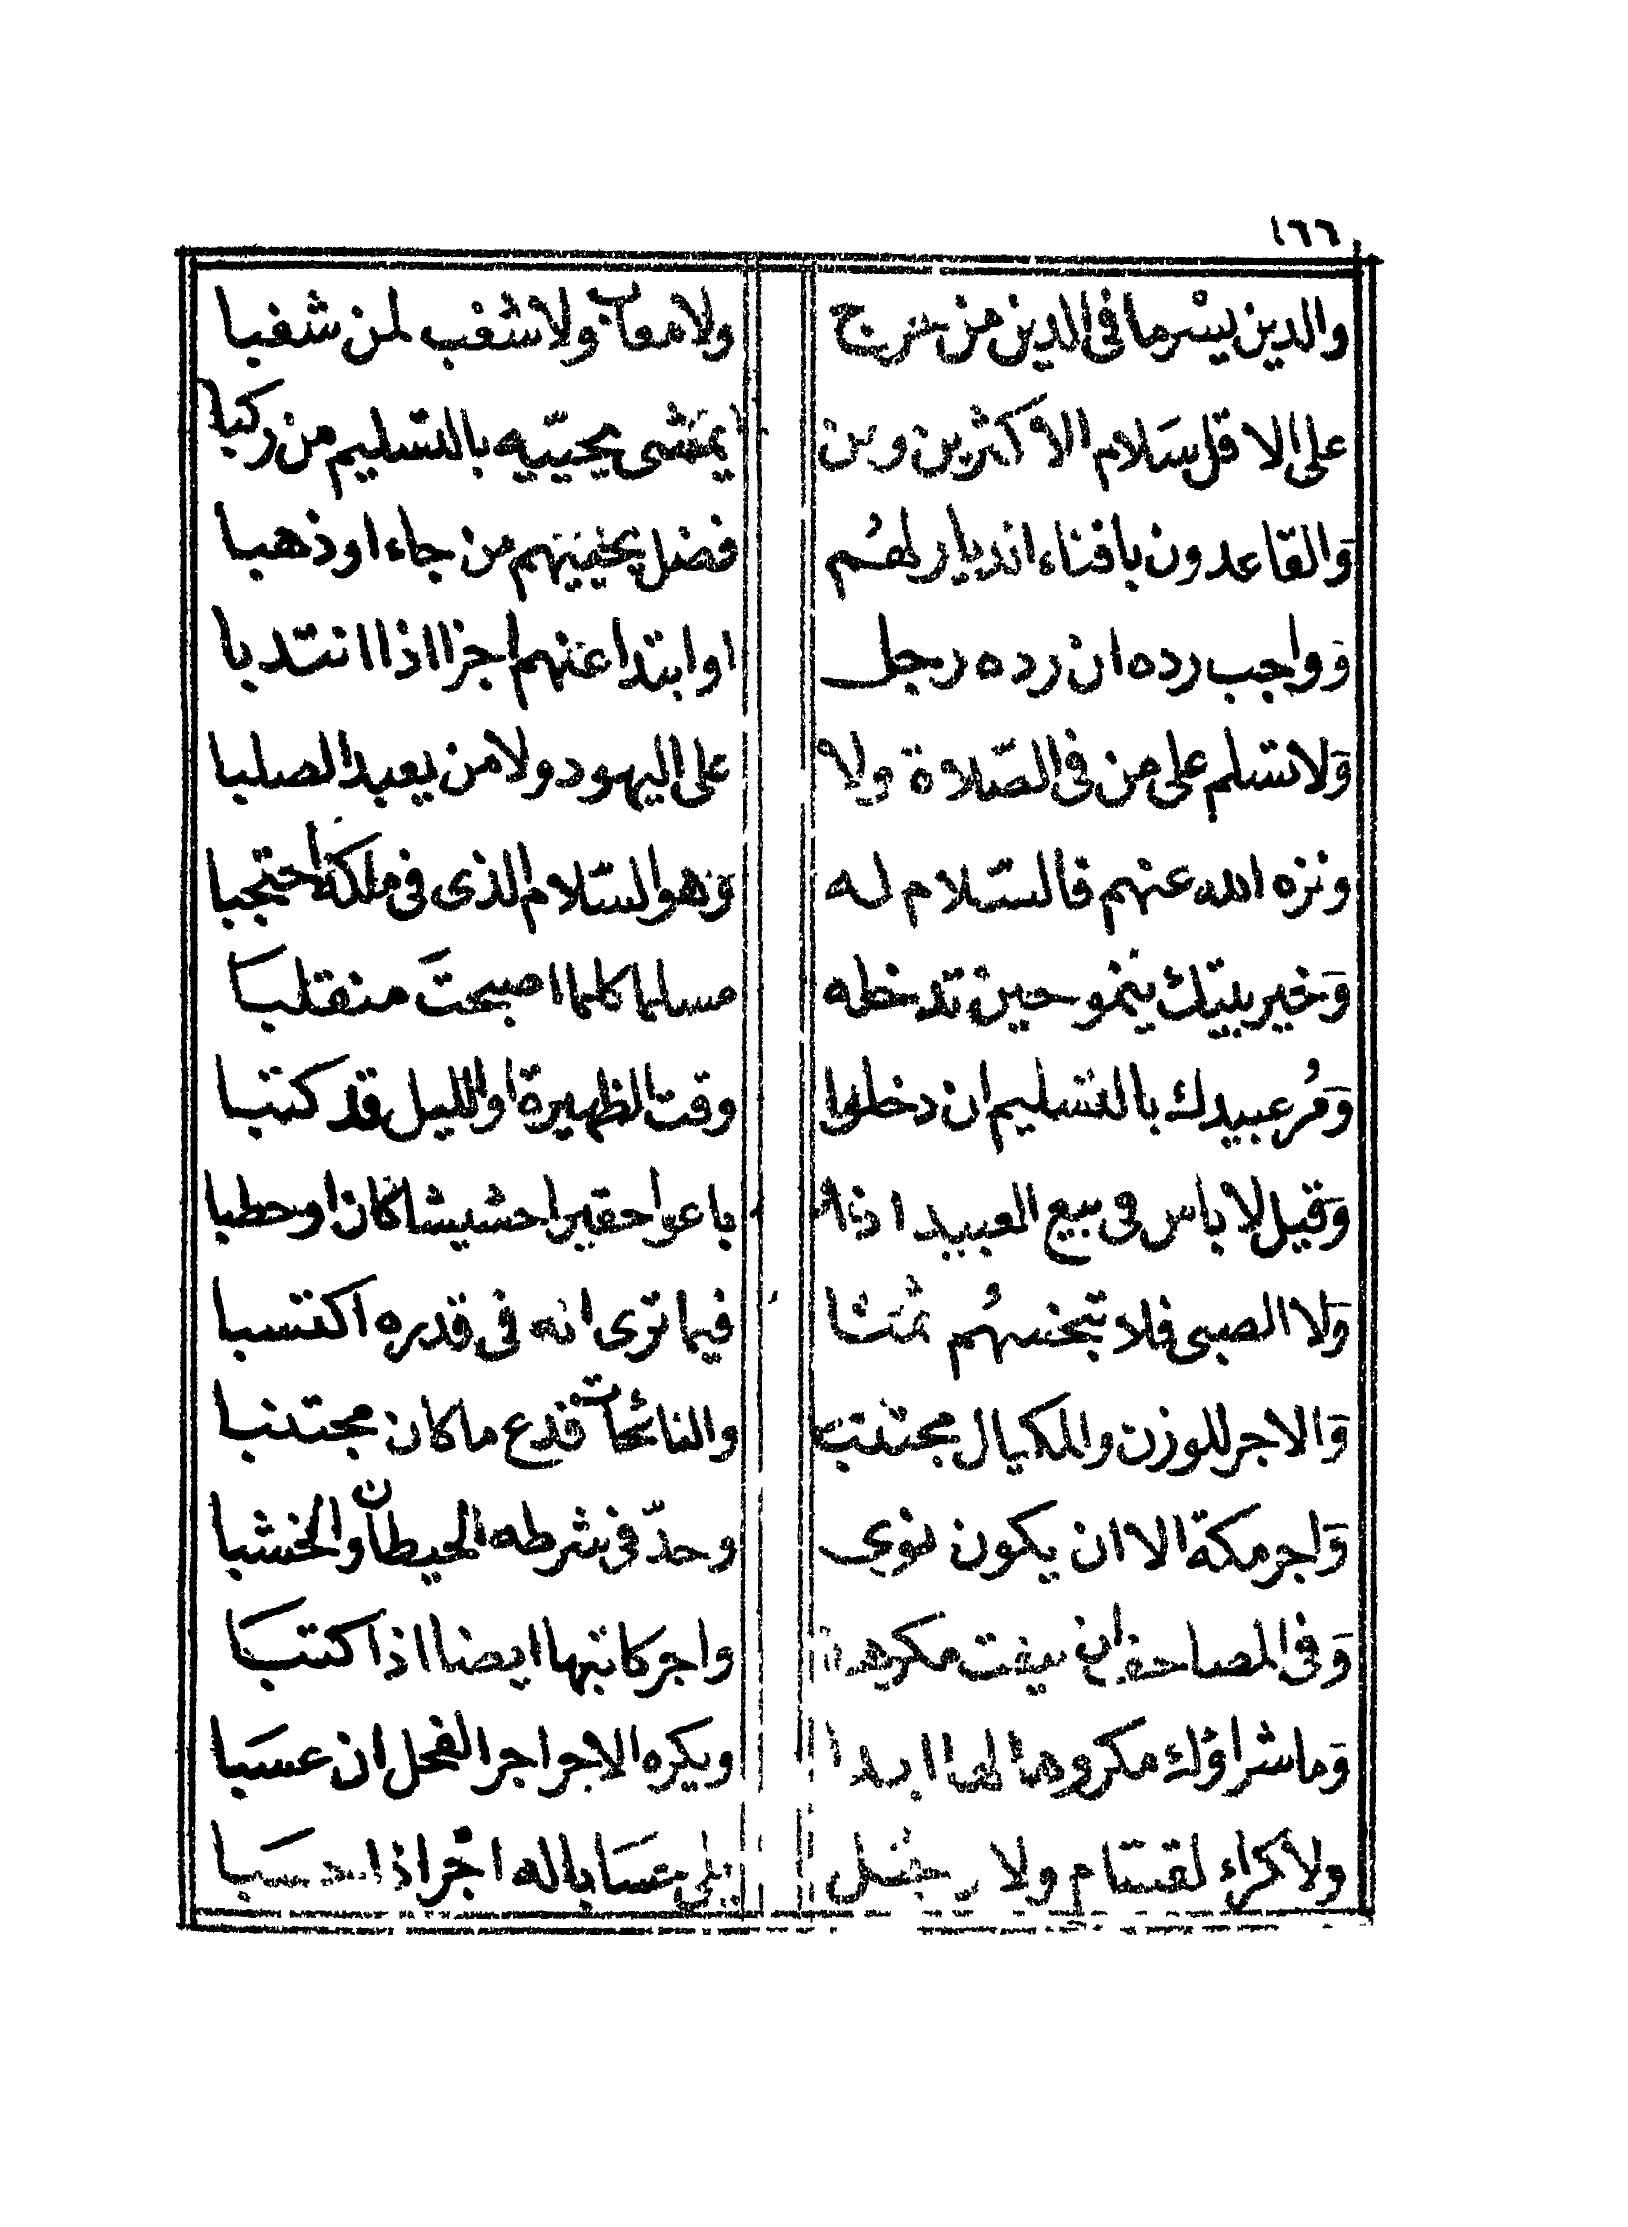 ١٦٦
والدين يسْر ما فى الدين من حرج ولا معاب ولا شغب لمن شغبا
على الاقل سَلام الاكثرين ومن يمشى يحيّيه بالتسليم من ركبا
وَالقاعدون بافناء الديار لهُم فضل يحييهم من جاء او ذهبا
وَواجب رده ان رده رجل او ابتدا عنهم اجزا اذا انتدبا
وَلا تسلم على من فى الصّلاة ولا على اليهود ولا من يعبد الصلبا
ونزه الله عنهم فالسّلام له وَهو السّلام الذى فى ملكه احتجبا
وَخير بيتك ينمو حين تدخله مسلما كلما اصبحتَ منقلبَا
وَمُر عبيدك بالتسليم ان دخلوا وقت الظهيرة او الليل قد كتبا
وَقيل لا باس فى بيع العبيد اذا باعوا حقيرا حشيشا كان او حطبا
وَلا الصبى فلا تبخسهُم ثمنا فيما ترى انه فى قدره اكتسبا
وَالاجر للوزن والمكيال مجتنب والنائحات فدع ما كان مجتنبا
وَاجر مكة الا ان يكون نوى وحدّ فى شرطه الحيطان والخشبا
وَفى المصاحف ان بيعت مكرهة واجر كاتبها ايضا اذا كتبَا
وَما شراؤك مكروها لها ابدا ويكره الاجر اجر الفحل ان عسَبا
ولا كراء لقسّام ولا رجل بلى عسَا باله اجْرا اذا حسَبا